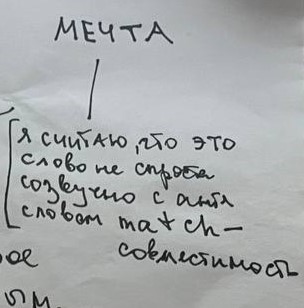 МЕЧТА
Я СЧИТАЮ, ЧТО ЭТО
СЛОВО НЕ СПРОСТА
СОЗВУЧНО С АНГЛ
СЛОВОМ match –
СОВМЕСТИМОСТЬ